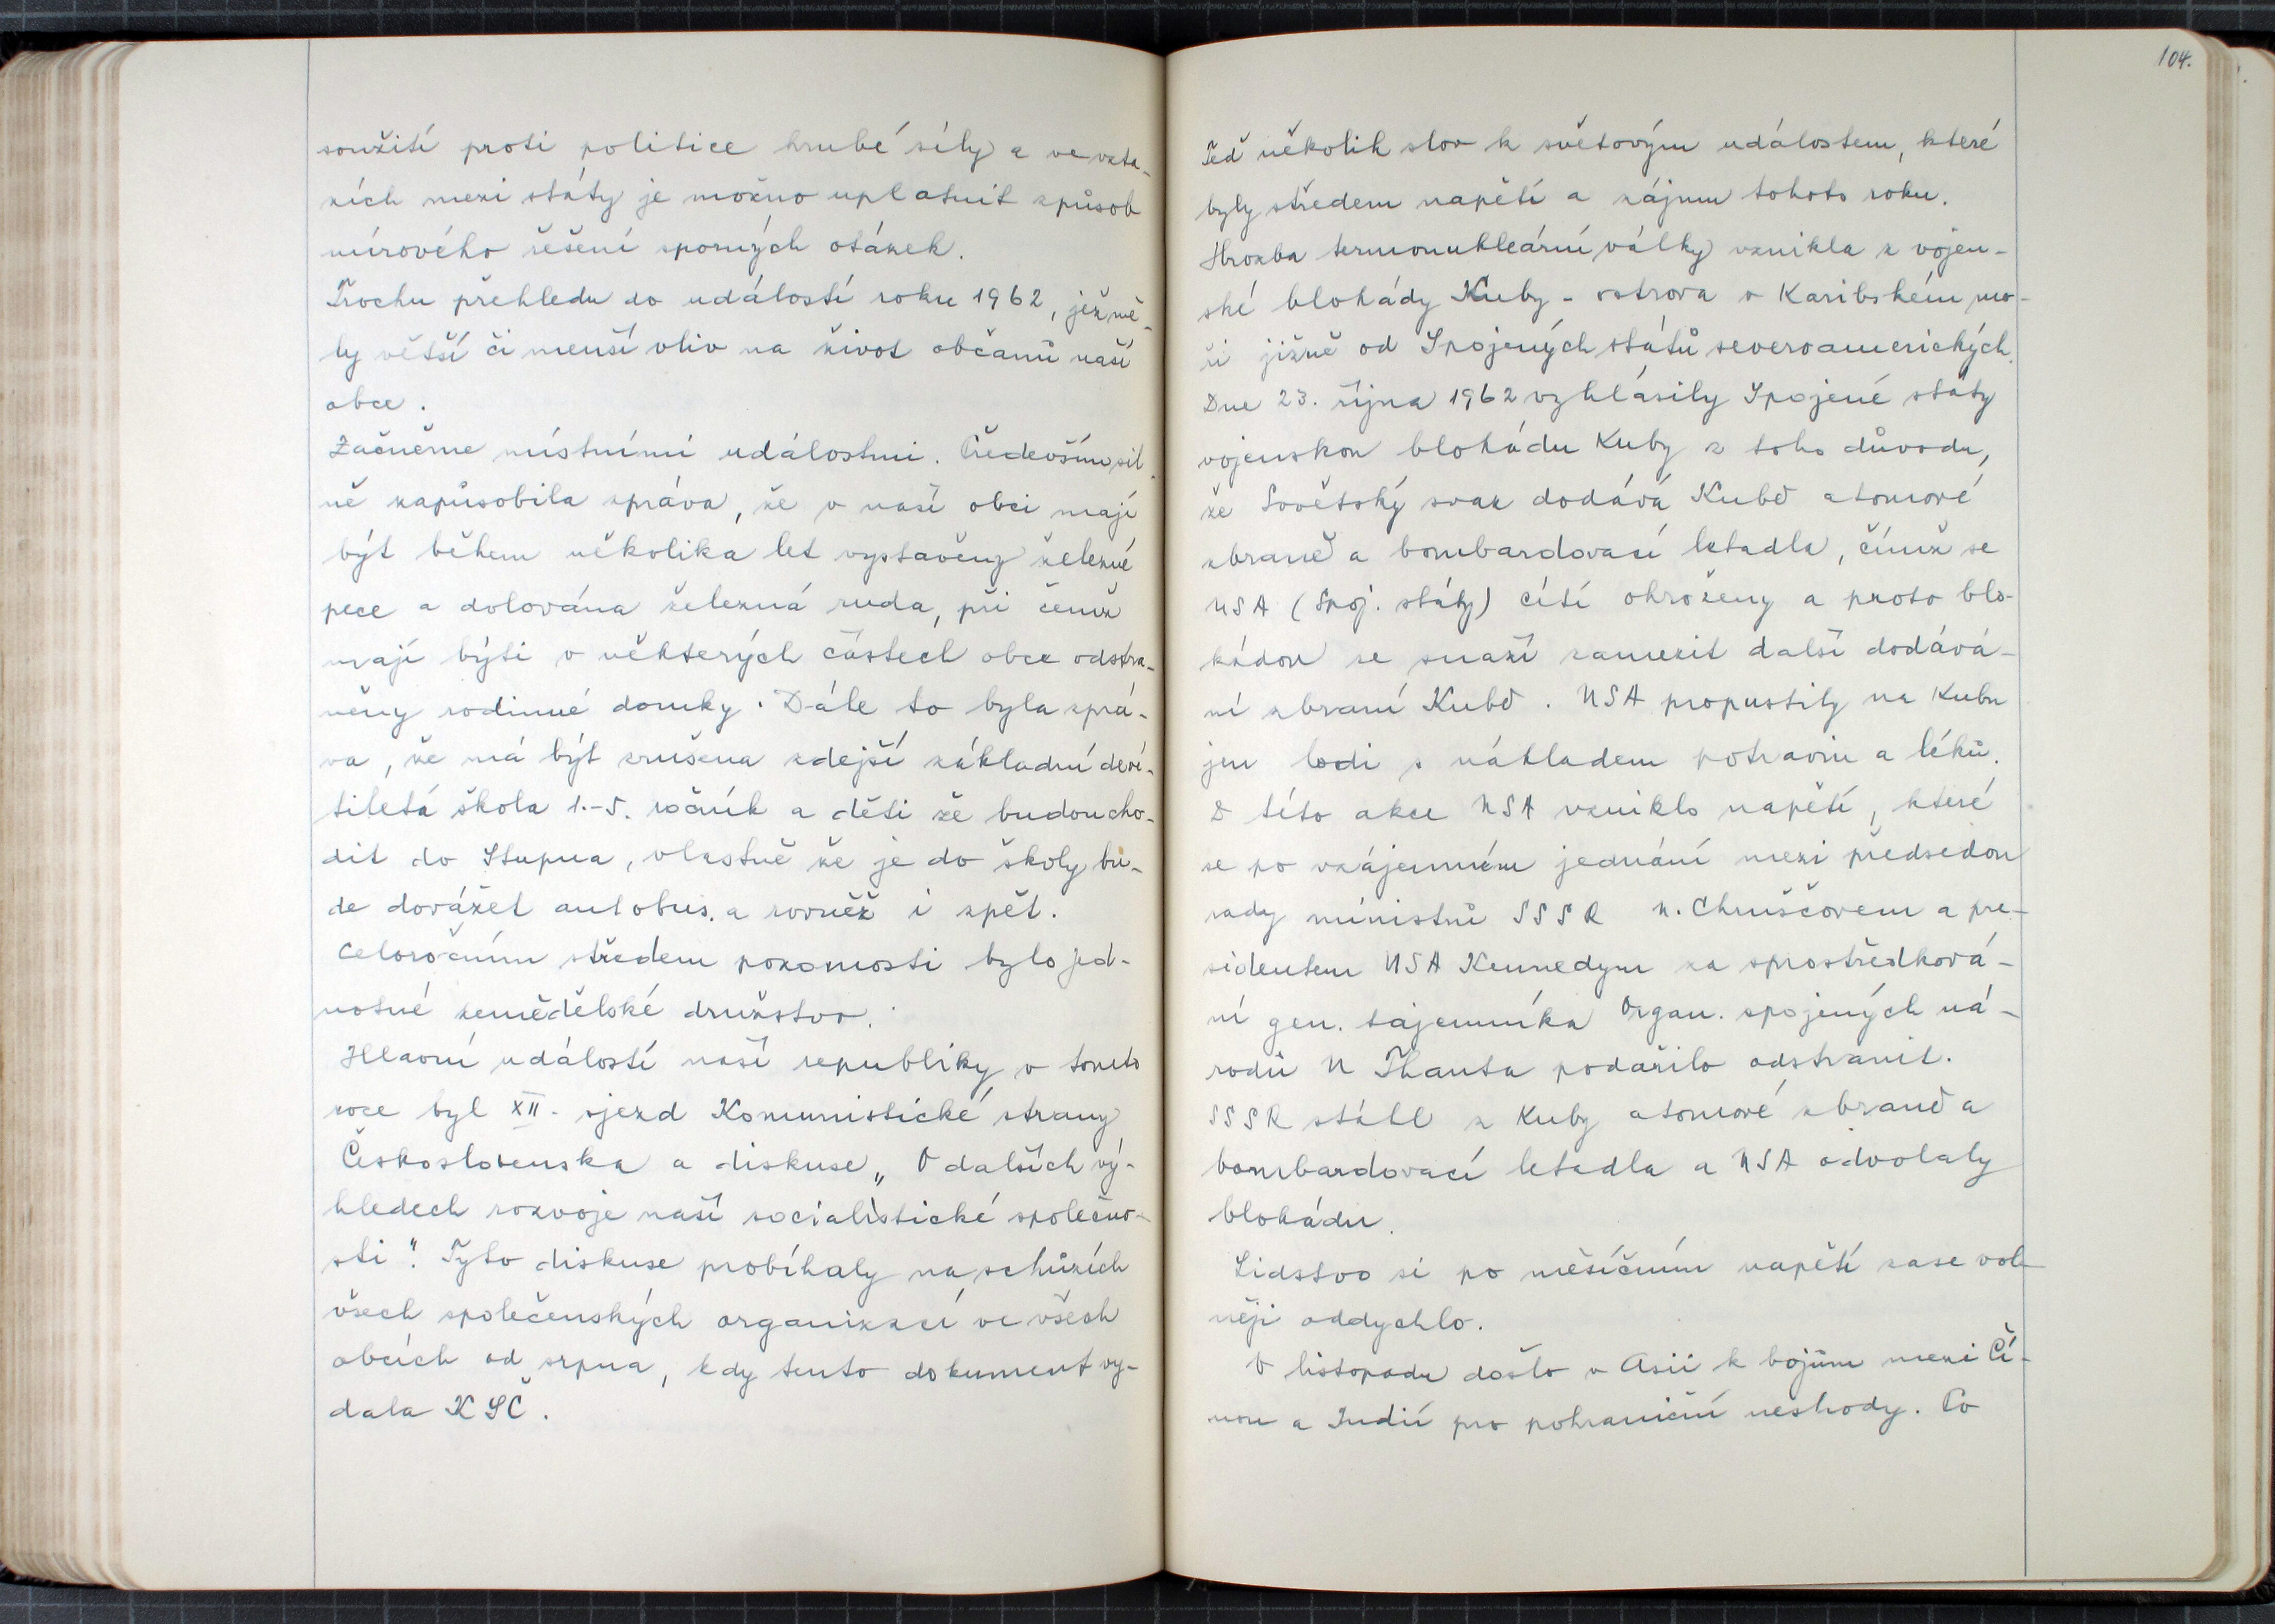 soužití proti politice hrubé síly a ve vzta-
zích mezi státy je možno uplatnit způsob
mírového řešení sporných otázek.
Trochu přehledu do událostí roku 1962, jež mě-
ly větší či menší vliv na život občanů naší
obce.
Začněme místními událostmi. Především sil-
ně zapůsobila zpráva, že v naší obci mají
být během několika let vystavěny železné
pece a dolována železná ruda, při čemž
mají býti v některých částech obce odstra-
něny rodinné domky. Dále to byla zprá-
va, že má být zrušena zdejší základní deví-
tiletá škola 1.-5. ročník a děti že budou cho-
dit do Stupna, vlastně že je do školy bu-
de dovážet autobus. a rovněž i zpět.
Celoročním středem pozornosti bylo jed-
notné zemědělské družstvo.
Hlavní událostí naší republiky v tomto
roce byl XII. sjezd Komunistické strany
Československa a diskuse „O dalších vý-
hledech rozvoje naší socialistické společno-
sti". Tyto diskuse probíhaly na schůzích
všech společenských organizací ve všech
obcích od srpna, kdy tento dokument vy-
dala KSČ.
104.
Teď několik slov k světovým událostem, které
byly středem napětí a zájmu tohoto roku.
Hrozba termonukleární války vznikla z vojen-
ské blokády Kuby - ostrova v Karibském mo-
ři jižně od Spojených států severoamerických.
Dne 23. října 1962 vyhlásily Spojené státy
vojenskou blokádu Kuby z toho důvodu,
že Sovětský svaz dodává Kubě atomové
zbraně a bombardovací letadla, čímž se
USA (Spoj. státy) cítí ohroženy a proto blo-
kádou se snaží zamezit další dodává-
ní zbraní Kubě. USA propustily na Kubu
jen lodi s nákladem potravin a léků.
Z této akce USA vzniklo napětí, které
se po vzájemném jednání mezi předsedou
rady ministrů SSSR N. Chruščovem a pre-
sidentem USA Kennedym za sprostředková-
ní gen. tajemníka Organ. spojených ná-
rodů U Thanta podařilo odstranit.
SSSR stáhl z Kuby atomové zbraně a
bombardovací letadla a USA odvolaly
blokádu.
Lidstvo si po měsíčním napětí zase vol-
něji oddychlo.
V listopadu došlo v Asii k bojům mezi Čí-
nou a Indií pro pohraniční neshody. Po